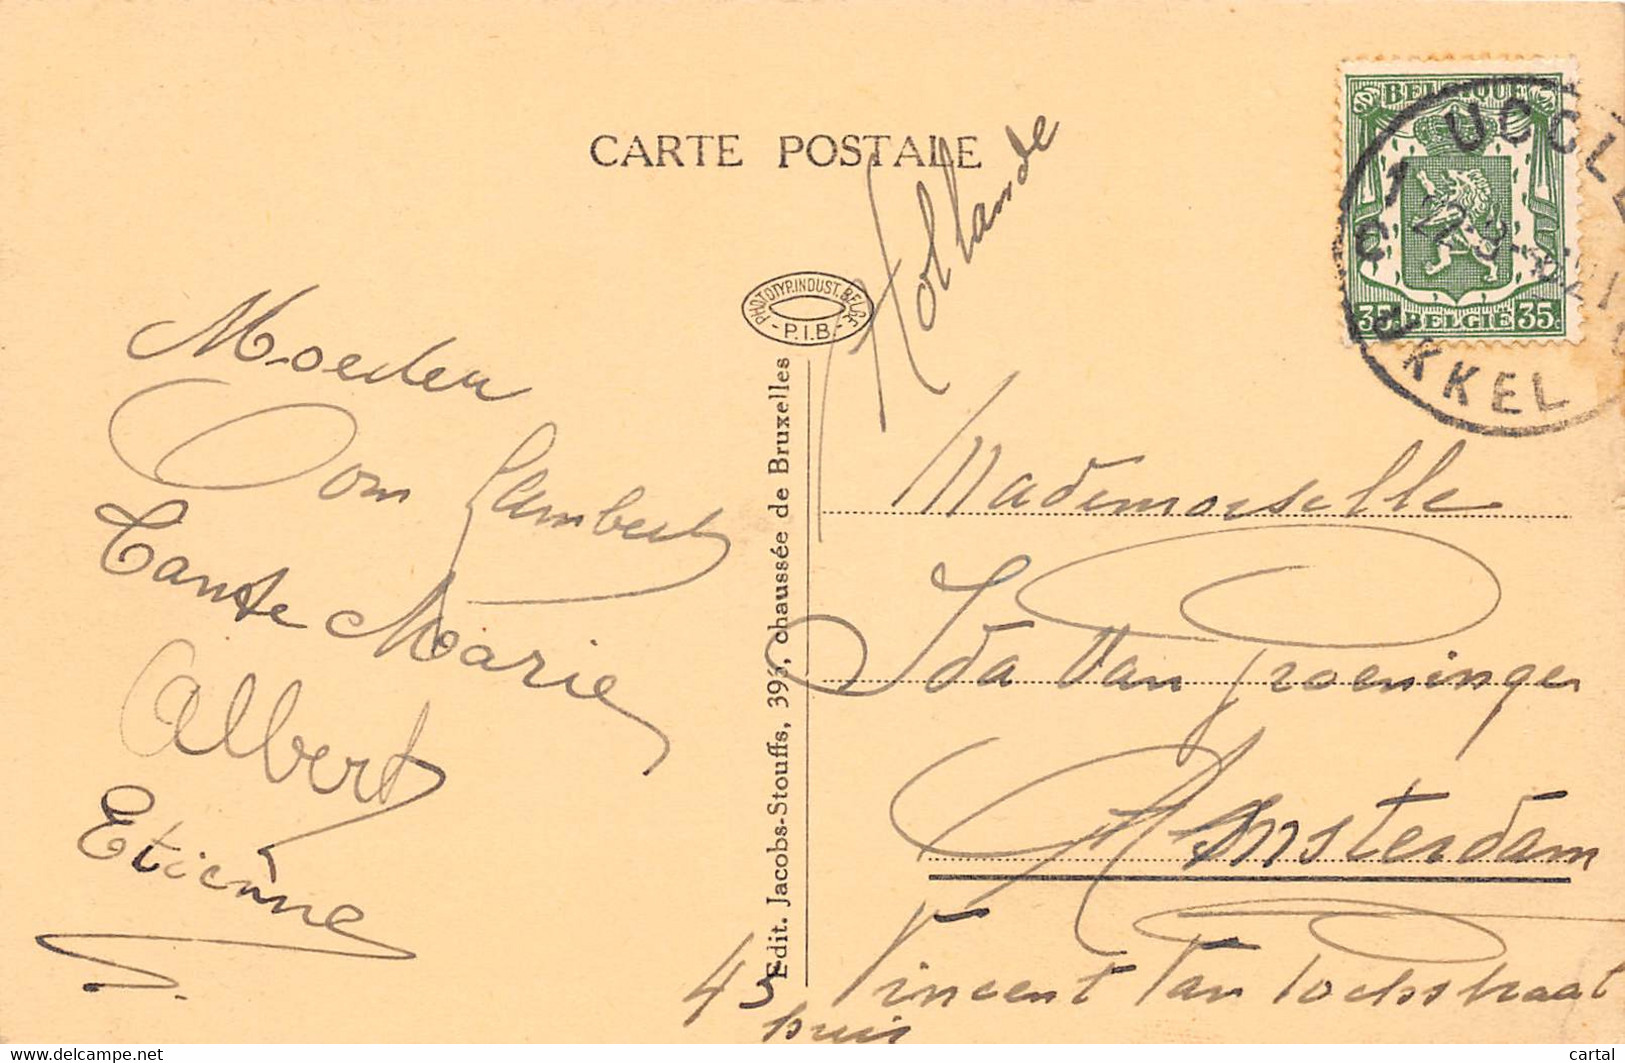 CARTE POSTALE
Hollande
BELGIQUE
35 BELGIE 35
UCCLE
UKKEL
PHOTOTYP. INDUST. BELGE
- P.I.B. -
Edit. Jacobs-Stouffs, 396, chaussée de Bruxelles
Moeder
Oom Lambert
Tante Marie
Albert
Etienne
Mademoiselle
Ida Van Groeningen
Amsterdam
45 Vincent Van
huis
www.delcampe.net
cartal